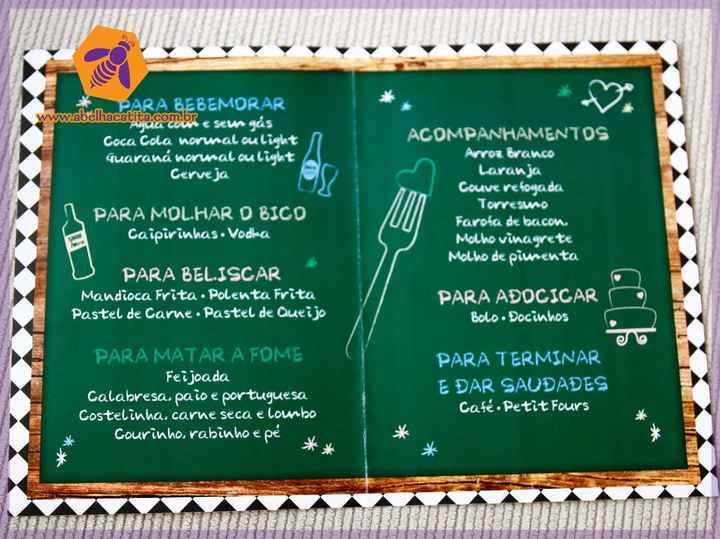 www.abelhacatita.com.br
PARA BEBEMORAR
Água com e sem gás
Coca Cola normal ou light
Guaraná normal ou light
Cerveja
PARA MOLHAR O BICO
Caipirinhas • Vodka
PARA BELISCAR
Mandioca Frita • Polenta Frita
Pastel de Carne • Pastel de Queijo
PARA MATAR A FOME
Feijoada
Calabresa, paio e portuguesa
Costelinha, carne seca e lombo
Courinho, rabinho e pé
ACOMPANHAMENTOS
Arroz Branco
Laranja
Couve refogada
Torresmo
Farofa de bacon.
Molho vinagrete
Molho de pimenta
PARA ADOCICAR
Bolo • Docinhos
PARA TERMINAR
E DAR SAUDADES
Café • Petit Fours